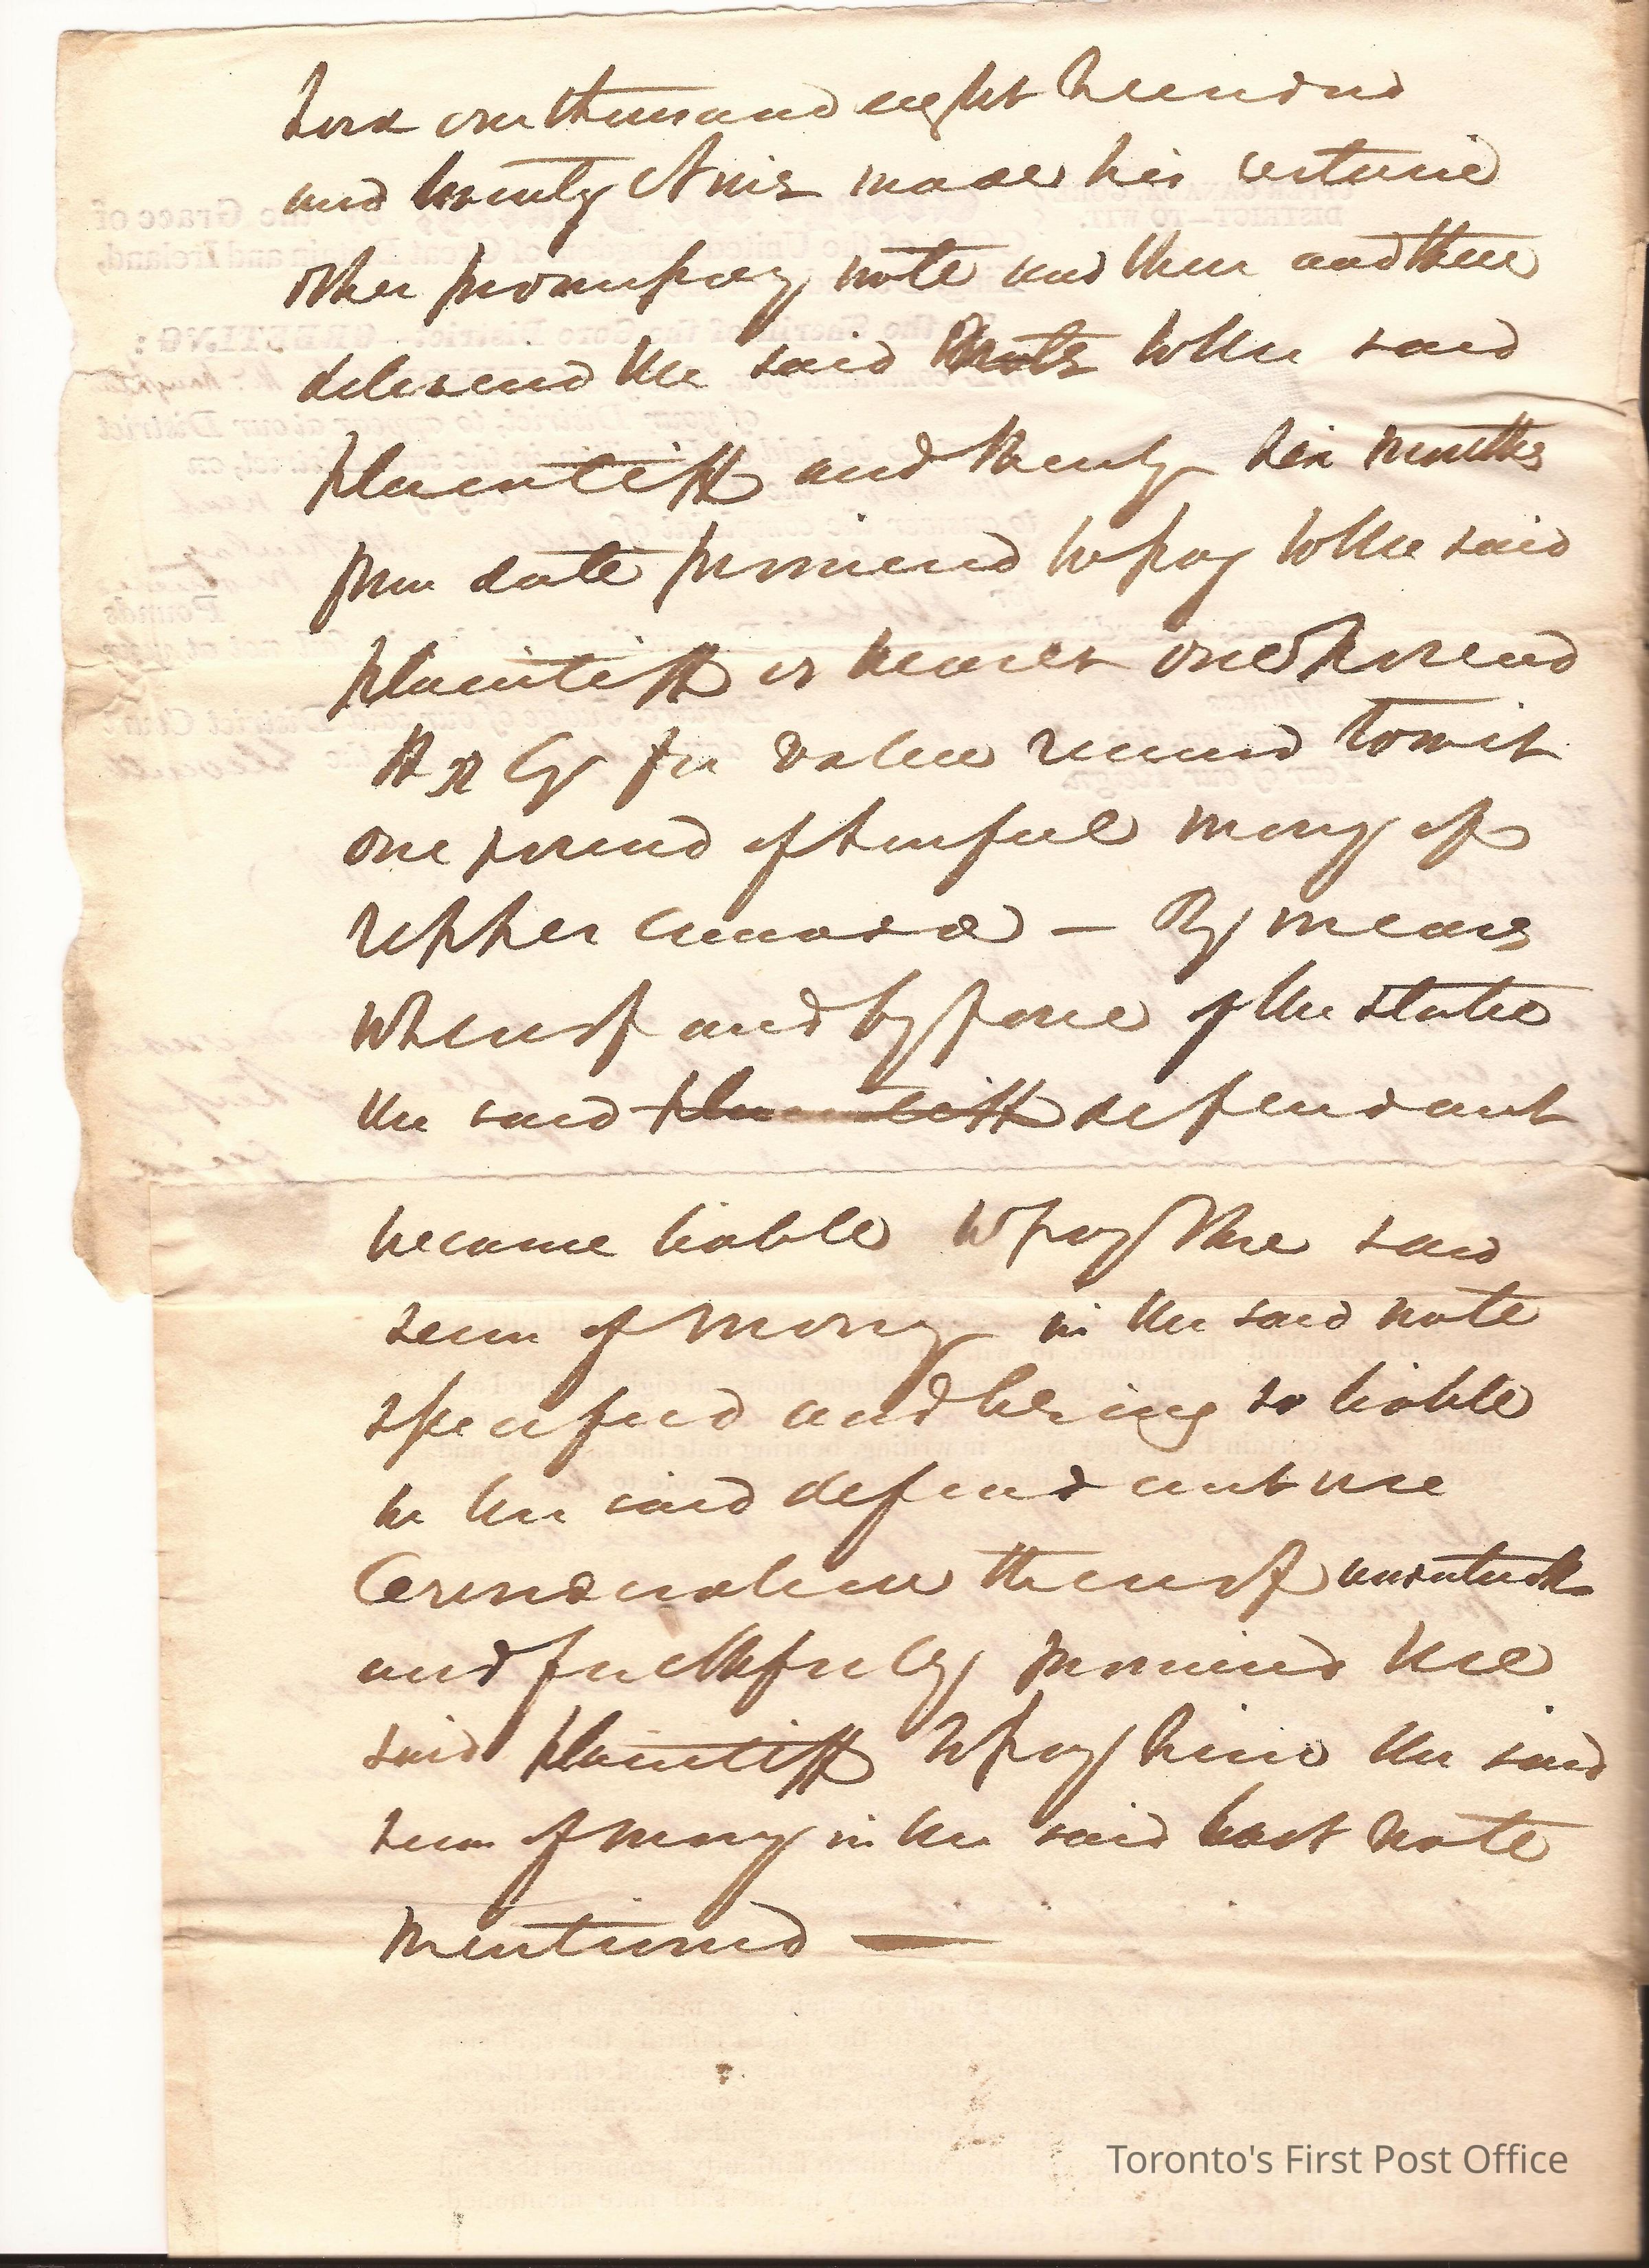 Lord one thousand eight hundred
and twenty Nine made his certain
other promissory note and then and there
delivered the said Note to the said
plaintiff and thereby six months
from date promised to pay to the said
plaintiff or bearer one Pound
for value received to wit
one pound of lawful money of
Upper Canada — By means
whereof and by force of the statute
the said plaintiff defendant
became liable to pay the said
sum of money in the said note
specified and being so liable
he the said defendant in
Consideration thereof undertook
and faithfully promised the
said plaintiff to pay him the said
sum of money in the said last note
mentioned —
Toronto's First Post Office